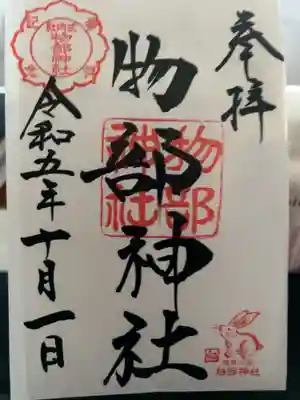 奉拝
物部神社
物部神社
令和五年十月一日
物部神社